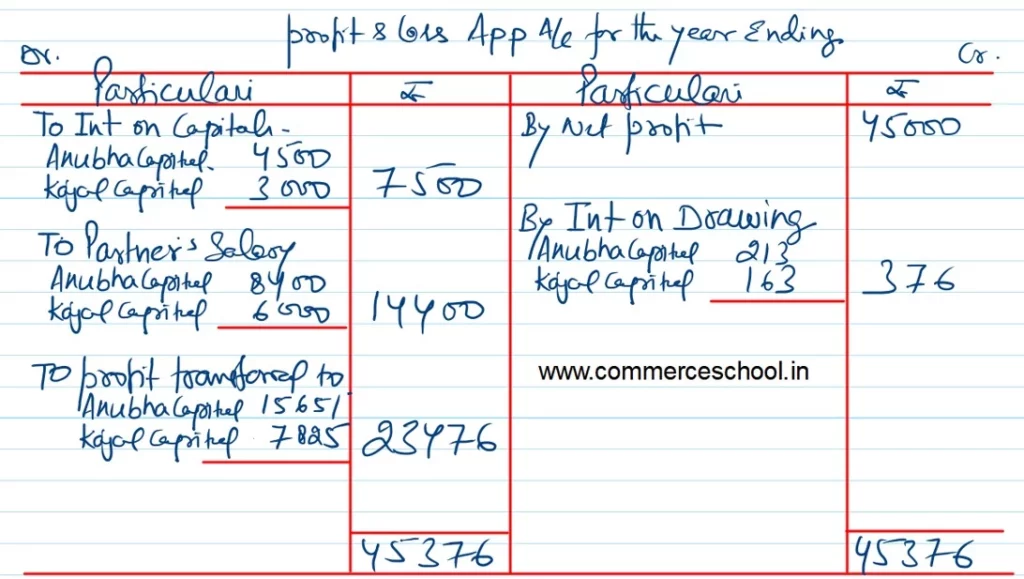 Profit & Loss App A/c for the year Ending
Dr. Cr.
Particulars ₹ Particulars ₹
To Int on Capitals - By Net profit 45000
Anubha Capital. 4500
Kajal Capital 3000 7500
By Int on Drawing
To Partner's Salary Anubha Capital 213
Anubha Capital 8400 Kajal Capital 163 376
Kajal Capital 6000 14400
To profit transferred to www.commerceschool.in
Anubha Capital 15651
Kajal Capital 7825 23476
45376 45376